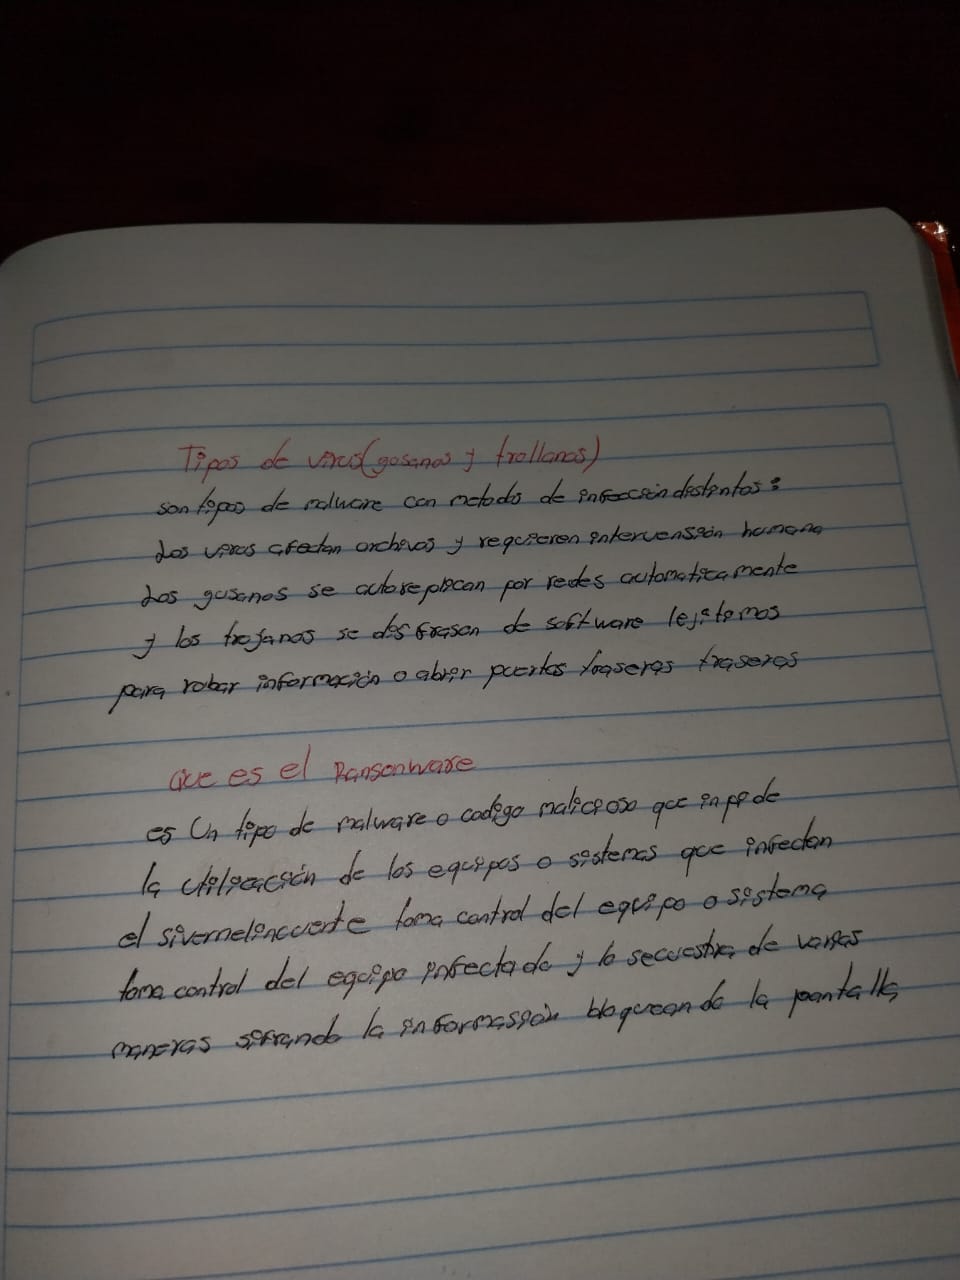 Tipos de virus(gosanos y trollanos)
son tipos de malware con metodo de infección distintos:
Los virus afectan archivos y requieren intervensión humana
Los gusanos se autoreplican por redes automaticamente
y los trojanos se disfrasan de software lejitomos
para robar información o abrir puertas traseras traseras
Que es el Ransonware
es Un tipo de malware o codigo malicioso que inpide
la utilización de los equipos o sistemas que infectan
el sivernelincuente toma control del equipo o sistema
toma control del equipo infectado y lo secuestra de varias
maneras sifrando la informassión bloqueando la pantalla